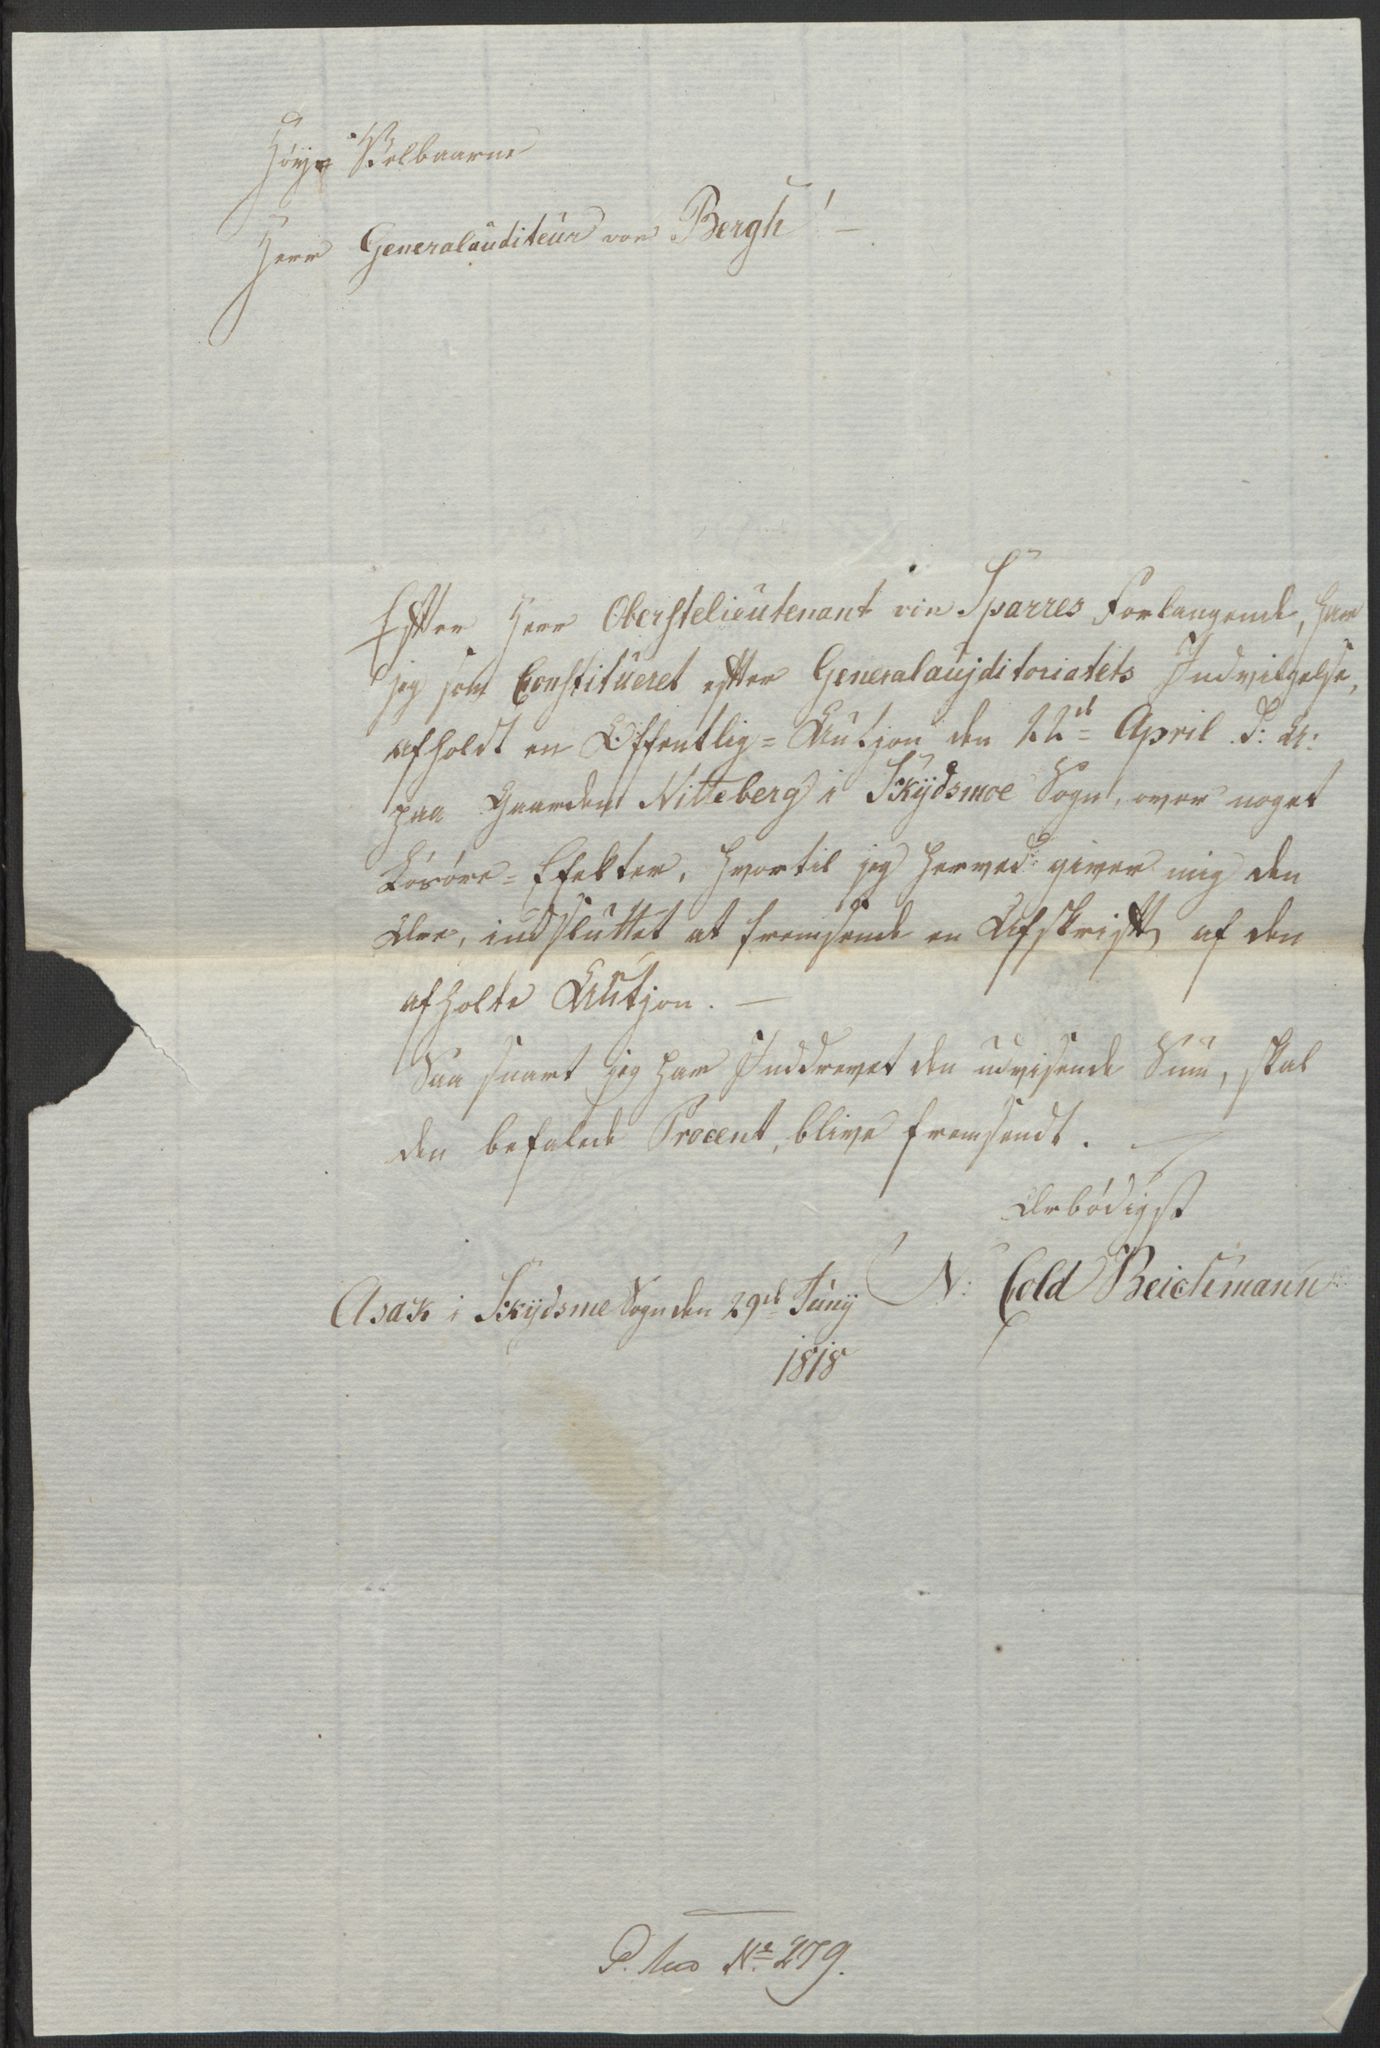 Høy Velbaarne
Herr Generalauditeur von Bergh! —
Efter Herr Oberstelieutenant von Sparres Forlangende, har
jeg som Constitueret efter Generalaujditoriatets Indvilgelse,
afholdt en Offentlig= Autjon den 22d April d: A:
paa Gaarden Nitteberg i Skydsmoe Sogn, over noget
Løsøre= Efekter, hvortil jeg herved giver mig den
Ære, indsluttet at fremsende en Afskrift af den
afholte Autjon. —
Saa snart jeg har Inddrevet den udvisende Sum, skal
den befalede Procent, blive fremsendt. —
Ærbødigst
N: Cold Beichmann
Asak i Skydsme Sogn den 29d Juny
1818
P. No 279.